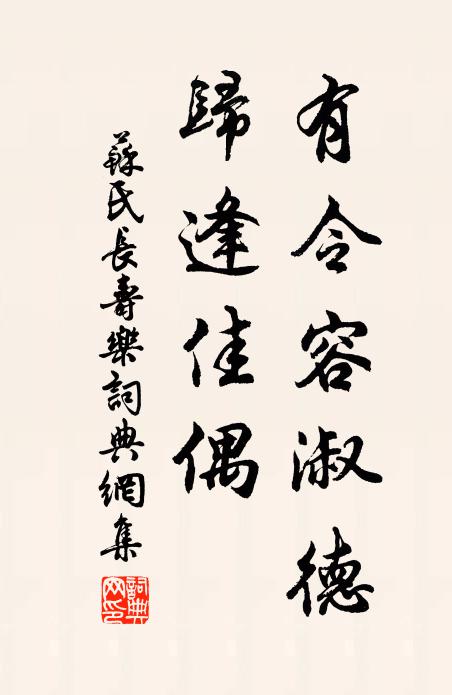 有令容淑德
歸逢佳偶
蘇氏長壽樂詞典網集
詞典網印